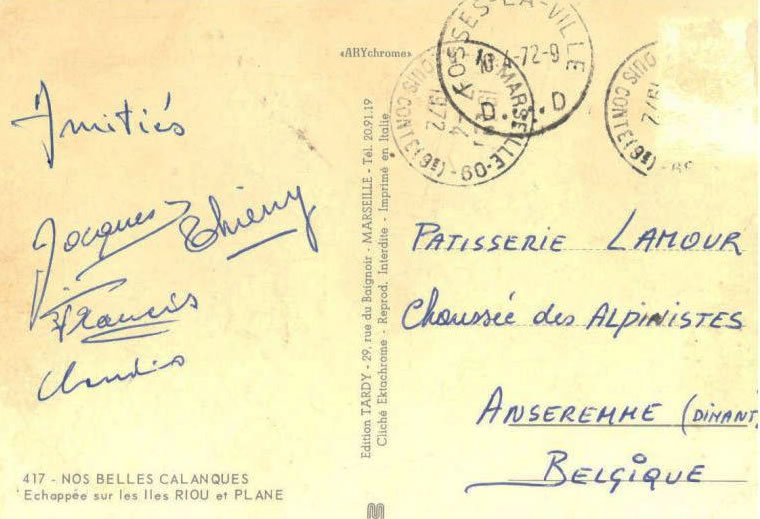 Amitiés
Jacques Thierry
Francis
Claudio
417 - NOS BELLES CALANQUES
Echappée sur les Iles RIOU et PLANE
«ARYchrome»
Edition TARDY - 29, rue du Baignoir - MARSEILLE - Tél. 20.91.19
Cliché Ektachrome - Reprod. Interdite - Imprimé en Italie
FOSSES-LA-VILLE
4-72-9
D D
MARSEILLE-09
LOUIS CONTE (6e)
1972
LOUIS CONTE (6e)
PATISSERIE LAMOUR
Chaussée des ALPINISTES
ANSEREMME (DINANT
BELGIQUE